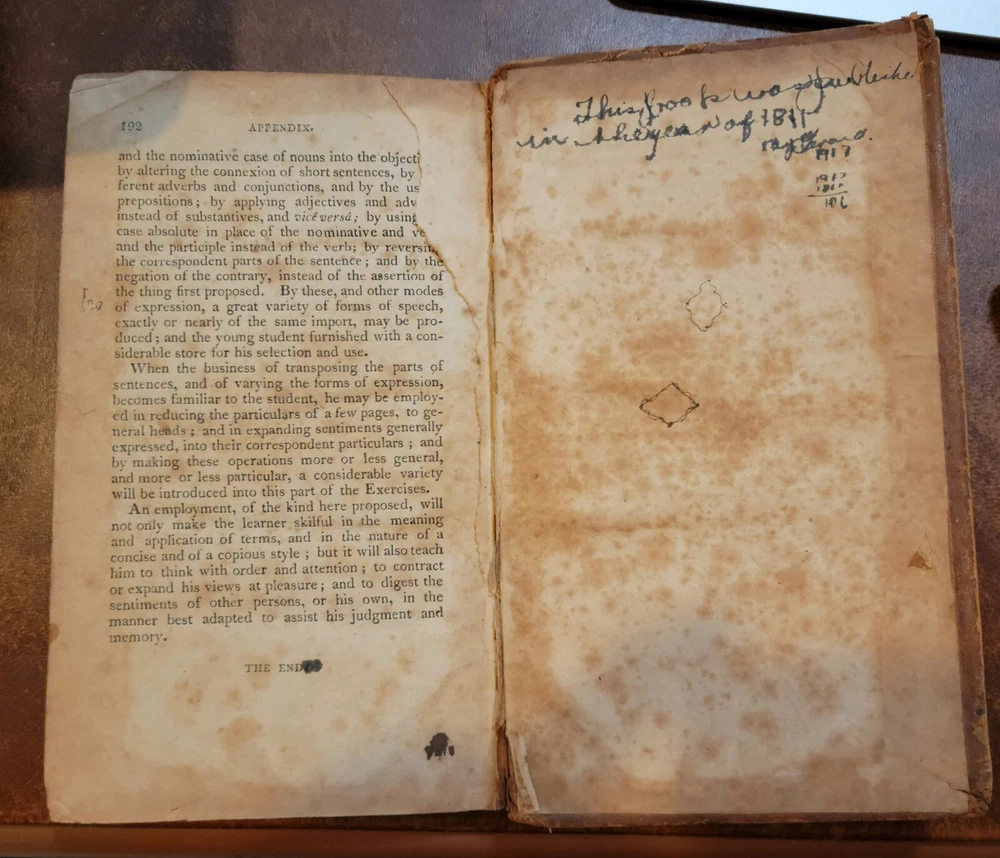 192
APPENDIX.
and the nominative case of nouns into the objecti
by altering the connexion of short sentences, by
ferent adverbs and conjunctions, and by the us
prepositions; by applying adjectives and adv
instead of substantives, and vicê versâ; by using
case absolute in place of the nominative and ve
and the participle instead of the verb; by reversin
the correspondent parts of the sentence; and by the
negation of the contrary, instead of the assertion of
the thing first proposed. By these, and other modes
of expression, a great variety of forms of speech,
exactly or nearly of the same import, may be pro-
duced; and the young student furnished with a con-
siderable store for his selection and use.
When the business of transposing the parts of
sentences, and of varying the forms of expression,
becomes familiar to the student, he may be employ-
ed in reducing the particulars of a few pages, to ge-
neral heads; and in expanding sentiments generally
expressed, into their correspondent particulars; and
by making these operations more or less general,
and more or less particular, a considerable variety
will be introduced into this part of the Exercises.
An employment, of the kind here proposed, will
not only make the learner skilful in the meaning
and application of terms, and in the nature of a
concise and of a copious style; but it will also teach
him to think with order and attention; to contract
or expand his views at pleasure; and to digest the
sentiments of other persons, or his own, in the
manner best adapted to assist his judgment and
memory.
THE END
This book was publishe
in the year of 1811
1917
1917
1811
106